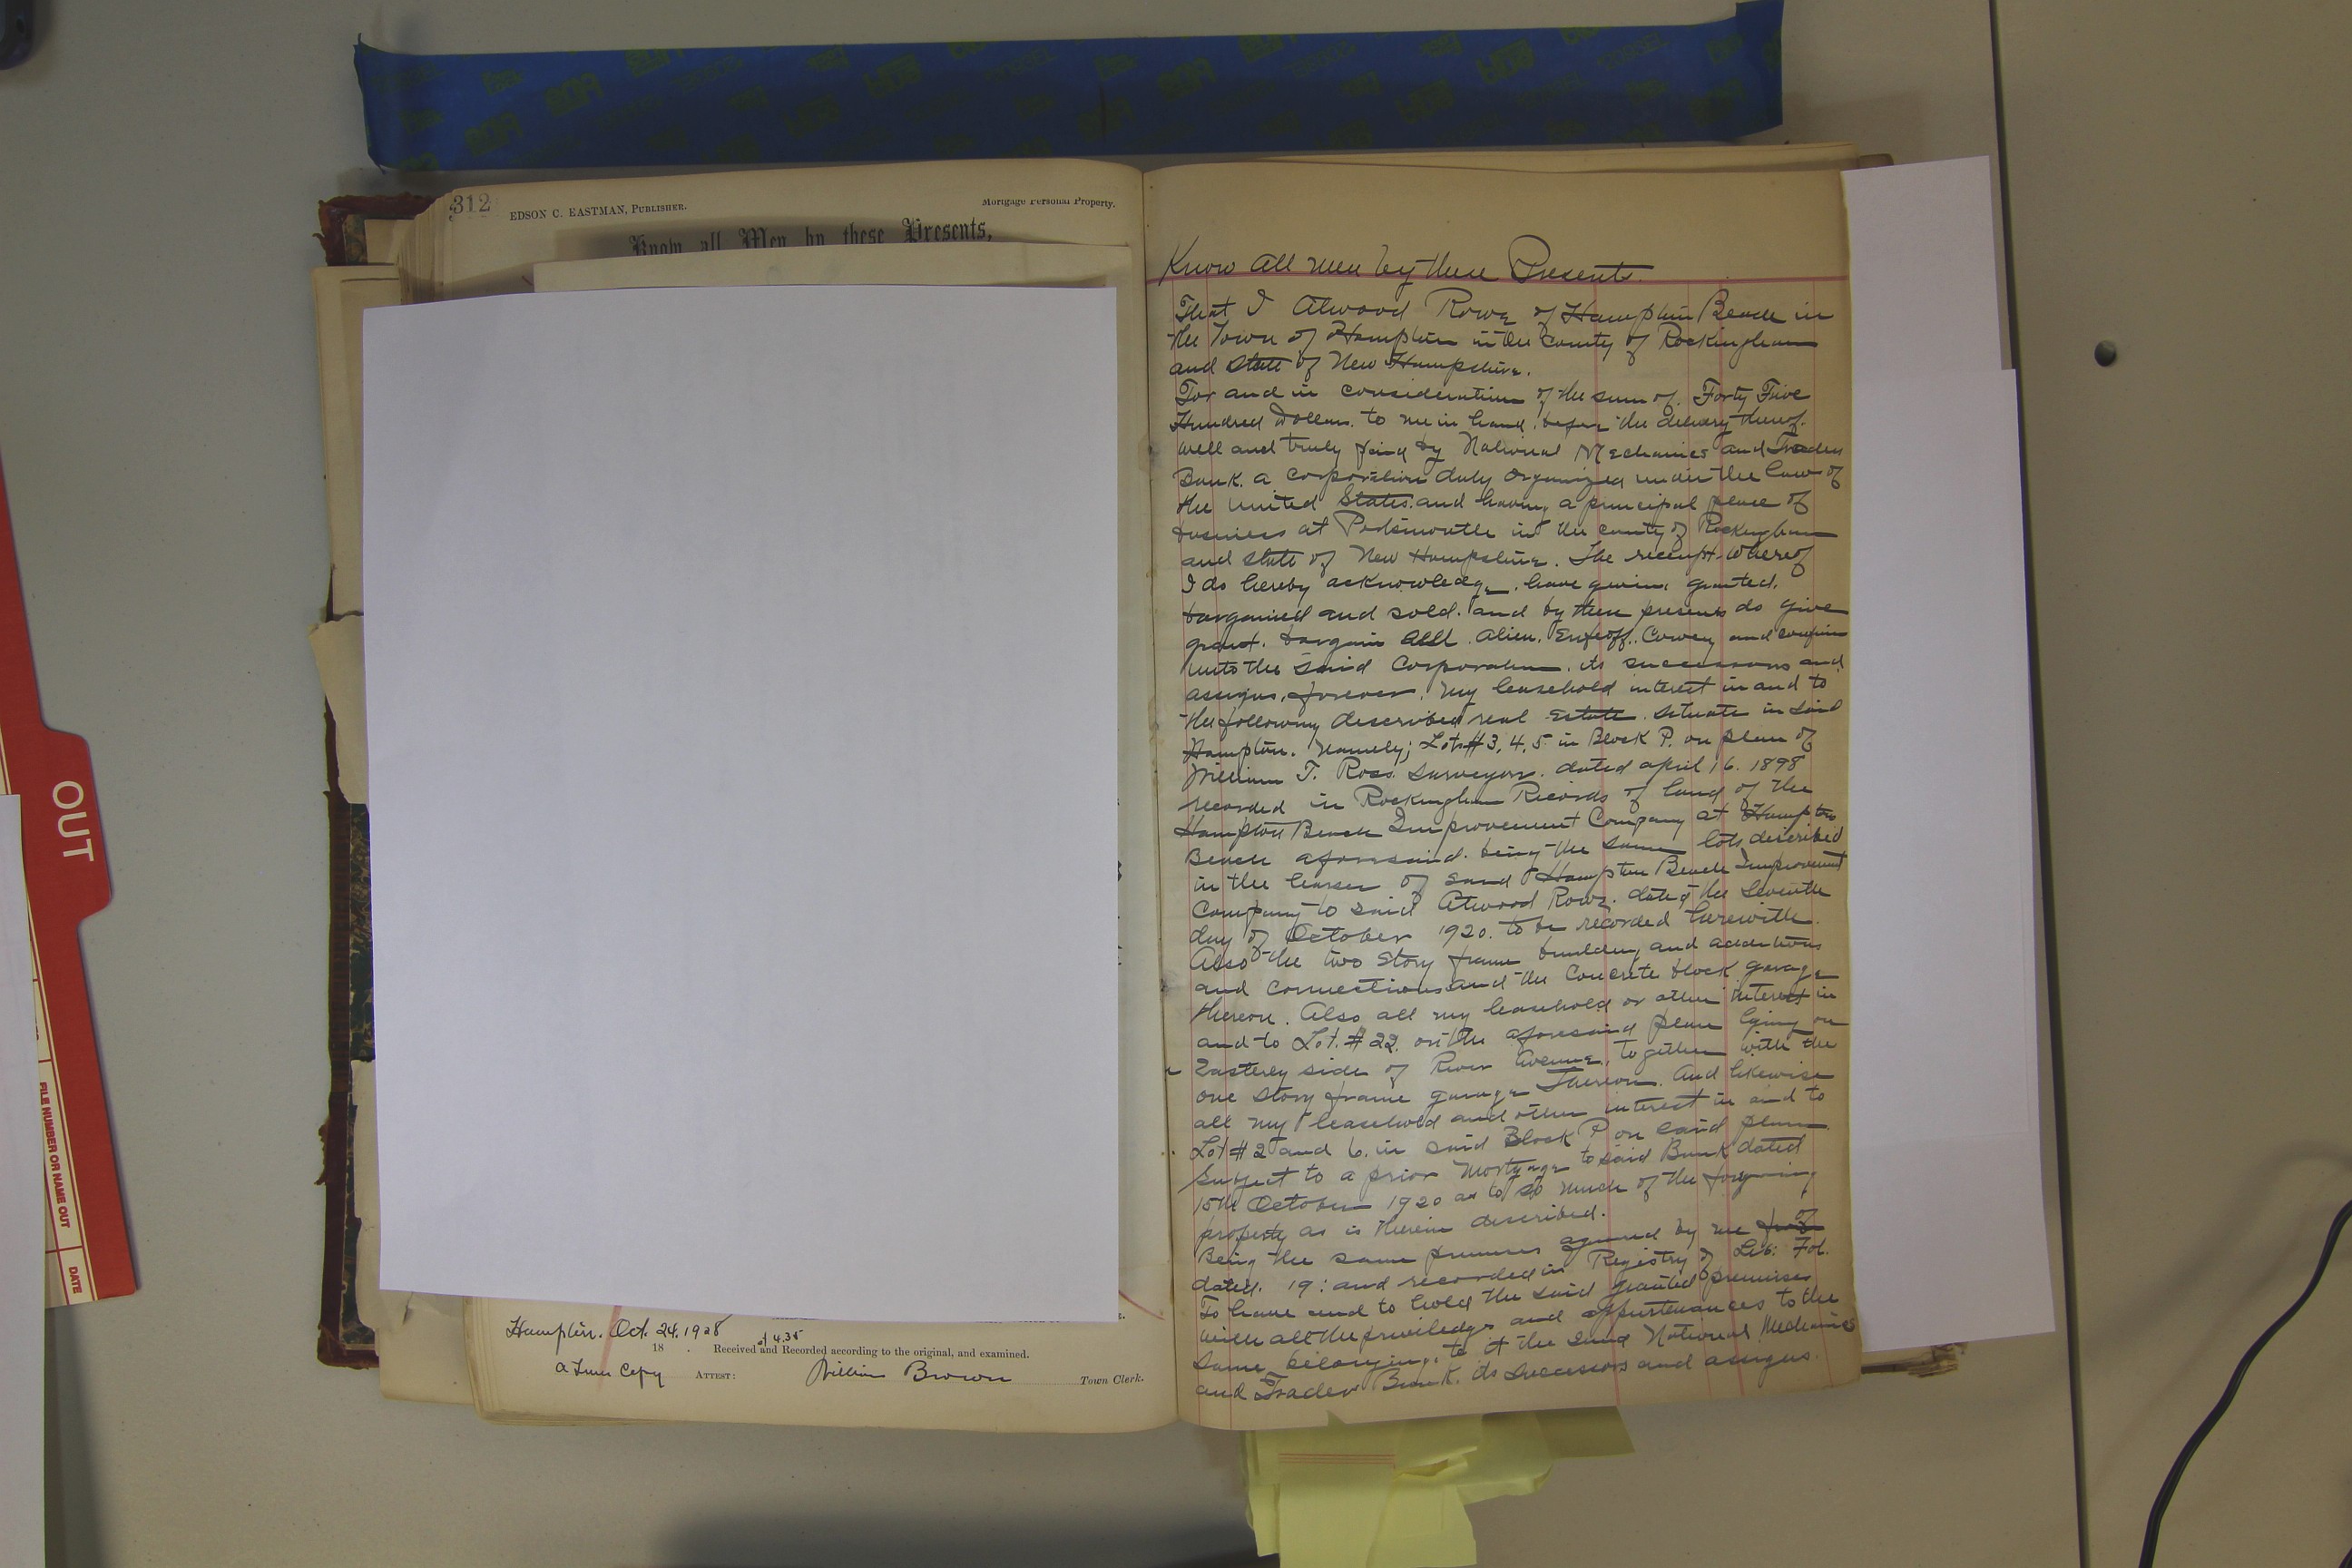 312
EDSON C. EASTMAN, PUBLISHER.
Mortgage Personal Property.
Know all Men by these Presents,
Know all men by these Presents
That I Atwood Rowe of Hampton Beach in
the Town of Hampton in the County of Rockingham
and State of New Hampshire.
For and in consideration of the sum of Forty Five
Hundred Dollars. to me in hand, before the delivery thereof.
well and truly paid by National Mechanics and Traders
Bank. a corporation duly organized under the laws of
the United States. and having a principal place of
business at Portsmouth in the county of Rockingham
and state of New Hampshire. The receipt whereof
I do hereby acknowledge, have given, granted,
bargained and sold. and by these presents do give
grant. bargain sell. alien. Enfeoff. Convey and confirm
unto the said Corporation. its successors and
assigns, forever. my leasehold interest in and to
the following described real estate. situate in said
Hampton. Namely; Lots #3, 4, 5 in Block P. on plan of
William T. Ross. Surveyor. dated april 16. 1898
recorded in Rockingham Records of land of the
Hampton Beach Improvement Company at Hampton
Beach aforesaid. being the same lots described
in the leases of said Hampton Beach Improvement
Company to said Atwood Rowe. dated the Seventh
day of October 1920. to be recorded herewith.
Also the two story frame building and additions
and connections and the Concrete block garage
thereon. Also all my leasehold or other interest in
and to Lot. #22. on the aforesaid plan lying on
Easterly side of River Avenue, together with the
one story frame garage Thereon. And likewise
all my leasehold and other interest in and to
Lot #2 and 6. in said Block P on said plan.
Subject to a prior Mortgage to said Bank dated
15th October 1920 as to so much of the foregoing
property as is therein described.
Being the same premises by me of
dated. 19: and recorded in Registry of Lib: Fol.
To have and to hold the said granted premises
with all the priviledges and appurtenances to the
same belonging. to it the said National Mechanics
and Traders Bank. its successors and assigns.
Hampton. Oct. 24. 1928
18 . Received and Recorded according to the original, and examined.
at 4.35
a True Copy ATTEST: William Brown Town Clerk.
OUT
FILE NUMBER OR NAME OUT
DATE